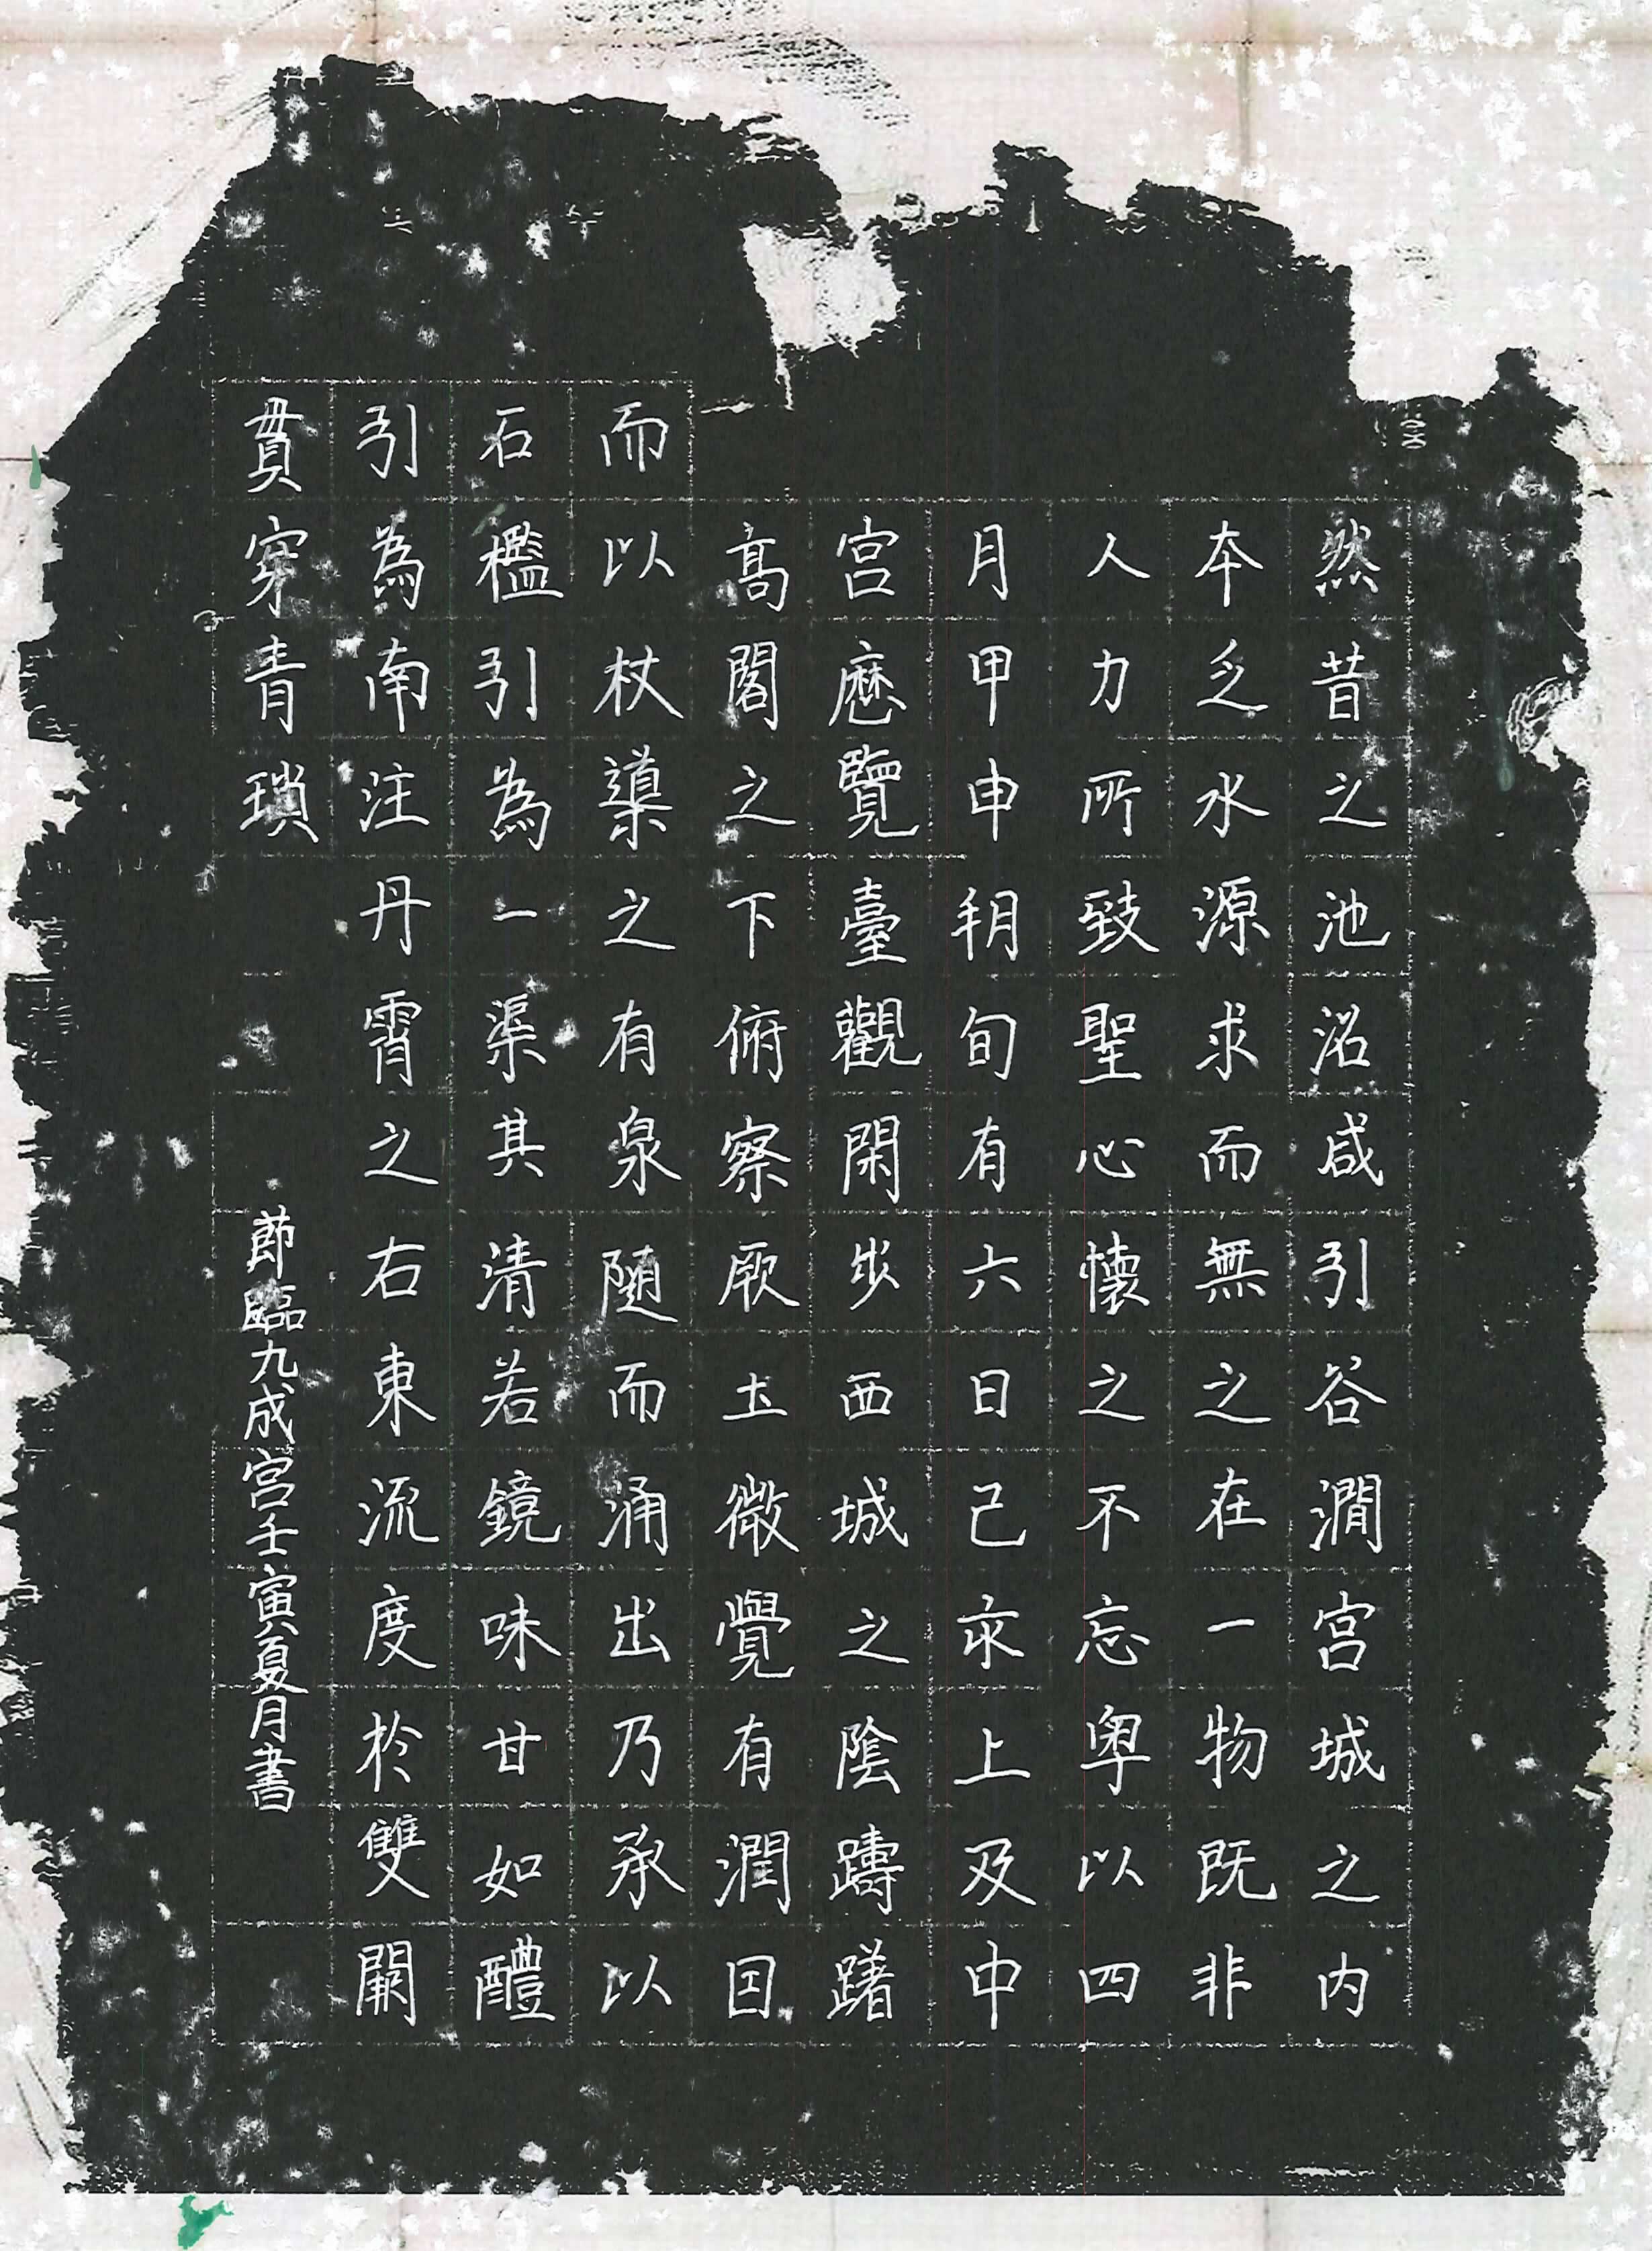 然昔之池沼咸引谷澗宮城之内
本乏水源求而無之在一物既非
人力所致聖心懷之不忘粤以四
月甲申朔旬有六日己亥上及中
宮歷覽臺觀閑步西城之陰躊躇
高閣之下俯察厥土微覺有潤因
而以杖導之有泉随而涌出乃承以
石檻引為一渠其清若鏡味甘如醴
引為南注丹霄之右東流度於雙闕
貫穿青瑣
節臨九成宮壬寅夏月書